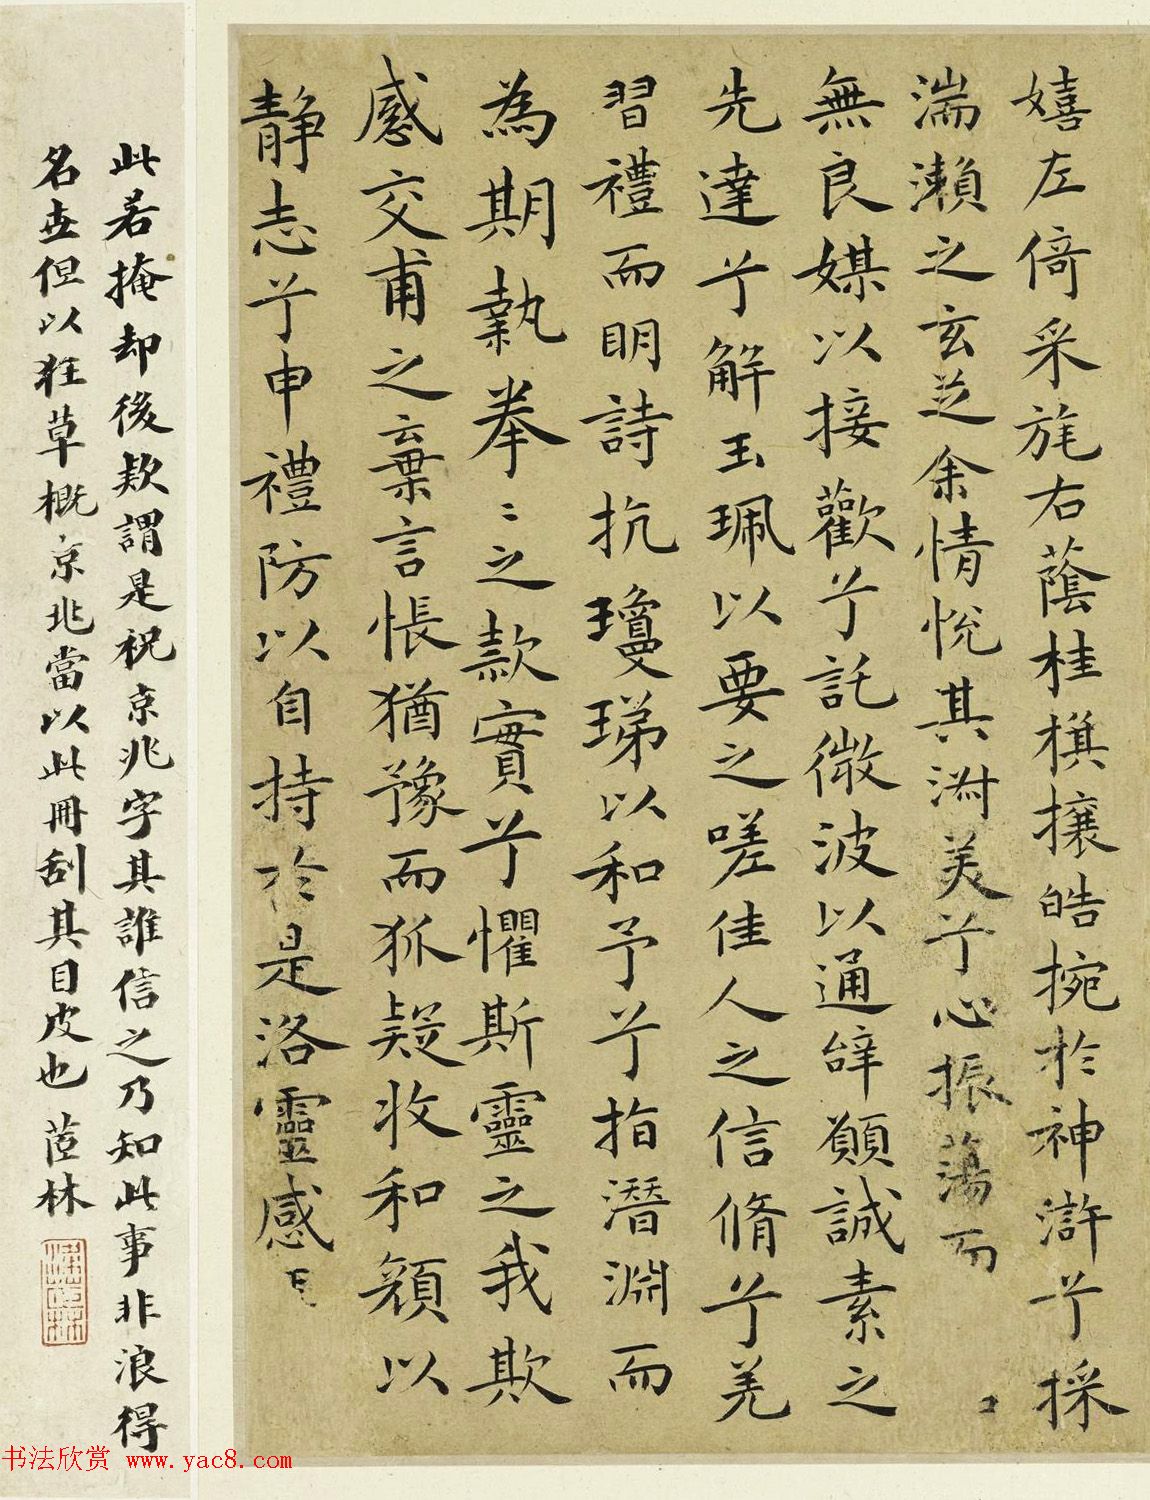 嬉左倚采旄右蔭桂棋攘皓捥於神滸兮採
湍瀨之玄芝余情悅其淑美兮心振蕩而
無良媒以接歡兮託微波以通辭願誠素之
先達兮解玉珮以要之嗟佳人之信脩兮羌
習禮而明詩抗瓊珶以和予兮指潛淵而
為期執拳〻之款實兮懼斯靈之我欺
感交甫之棄言悵猶豫而狐疑收和顏以
靜志兮申禮防以自持於是洛靈感
此若掩却後欵謂是祝京兆字其誰信之乃知此事非浪得
名世但以狂草概京兆當以此冊刮其目皮也 茝林
书法欣赏 www.yac8.com